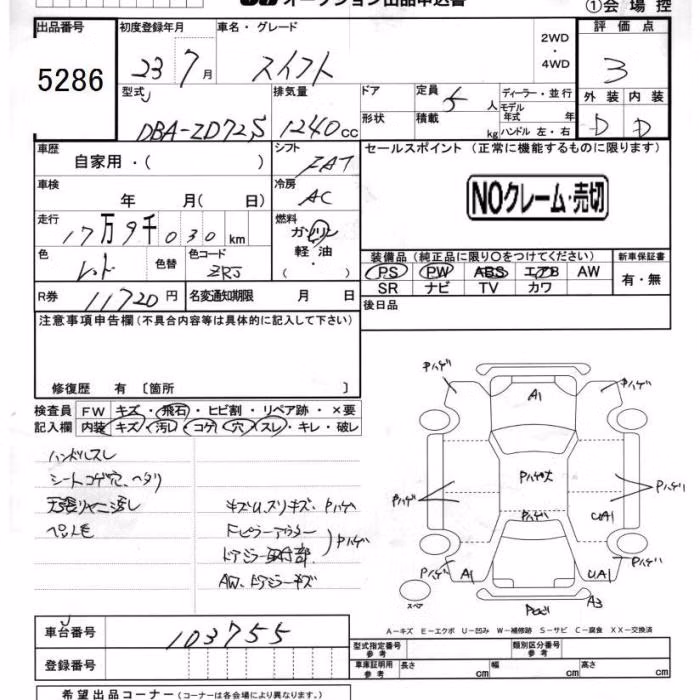 オークション出品申込書
①会場控
出品番号
5286
初度登録年月
車名・グレード
23 7月
スイフト
2WD
・
4WD
評価点
3
型式
DBA-ZD72S
排気量
1240cc
ドア
定員
5人
ディーラー・並行
モデル
年式 年
形状
積載
kg
ハンドル 左・右
外装 内装
D D
車歴
自家用・( )
シフト
FAT
セールスポイント(正常に機能するものに限ります)
車検
年 月( 日)
冷房
AC
NOクレーム・売切
走行
17万9千030km
燃料
ガソリン
軽油・
( )
色
レッド
色替
色コード
ZRJ
装備品(純正品に限り○をつけてください)
新車保証書
PS PW ABS エアB AW
SR ナビ TV カワ
有・無
R券
11720円
名変通知期限 月 日
後日品
注意事項申告欄(不具合内容等は具体的に記入して下さい)
修復歴 有〔箇所 〕
検査員
記入欄
FW キズ・飛石・ヒビ割・リペア跡・×要
内装 キズ・汚レ・コゲ・穴・スレ・キレ・破レ
ハンドルスレ
シートコゲ穴、ヘタリ
天張リヤニ汚レ
ペット毛
キズU、スリキズ、Pハゲ
Fピラーアウター
ドアミラー取付部
Pハゲ
AW、ドアミラーキズ
Pハゲ
Pハゲ
A1
Pハゲ大
Pハゲ
Pハゲ
Pハゲ
UA1
Pハゲ
A1
UA1
Pハゲ
A3
スペア
A−キズ E−エクボ U−凹み W−補修跡 S−サビ C−腐食 XX−交換済
車台番号
103755
登録番号
型式指定番号
参考
類別区分番号
参考
車庫証明用
参考
長さ
cm
幅
cm
高さ
cm
希望出品コーナー(コーナーは各会場により異なります。)